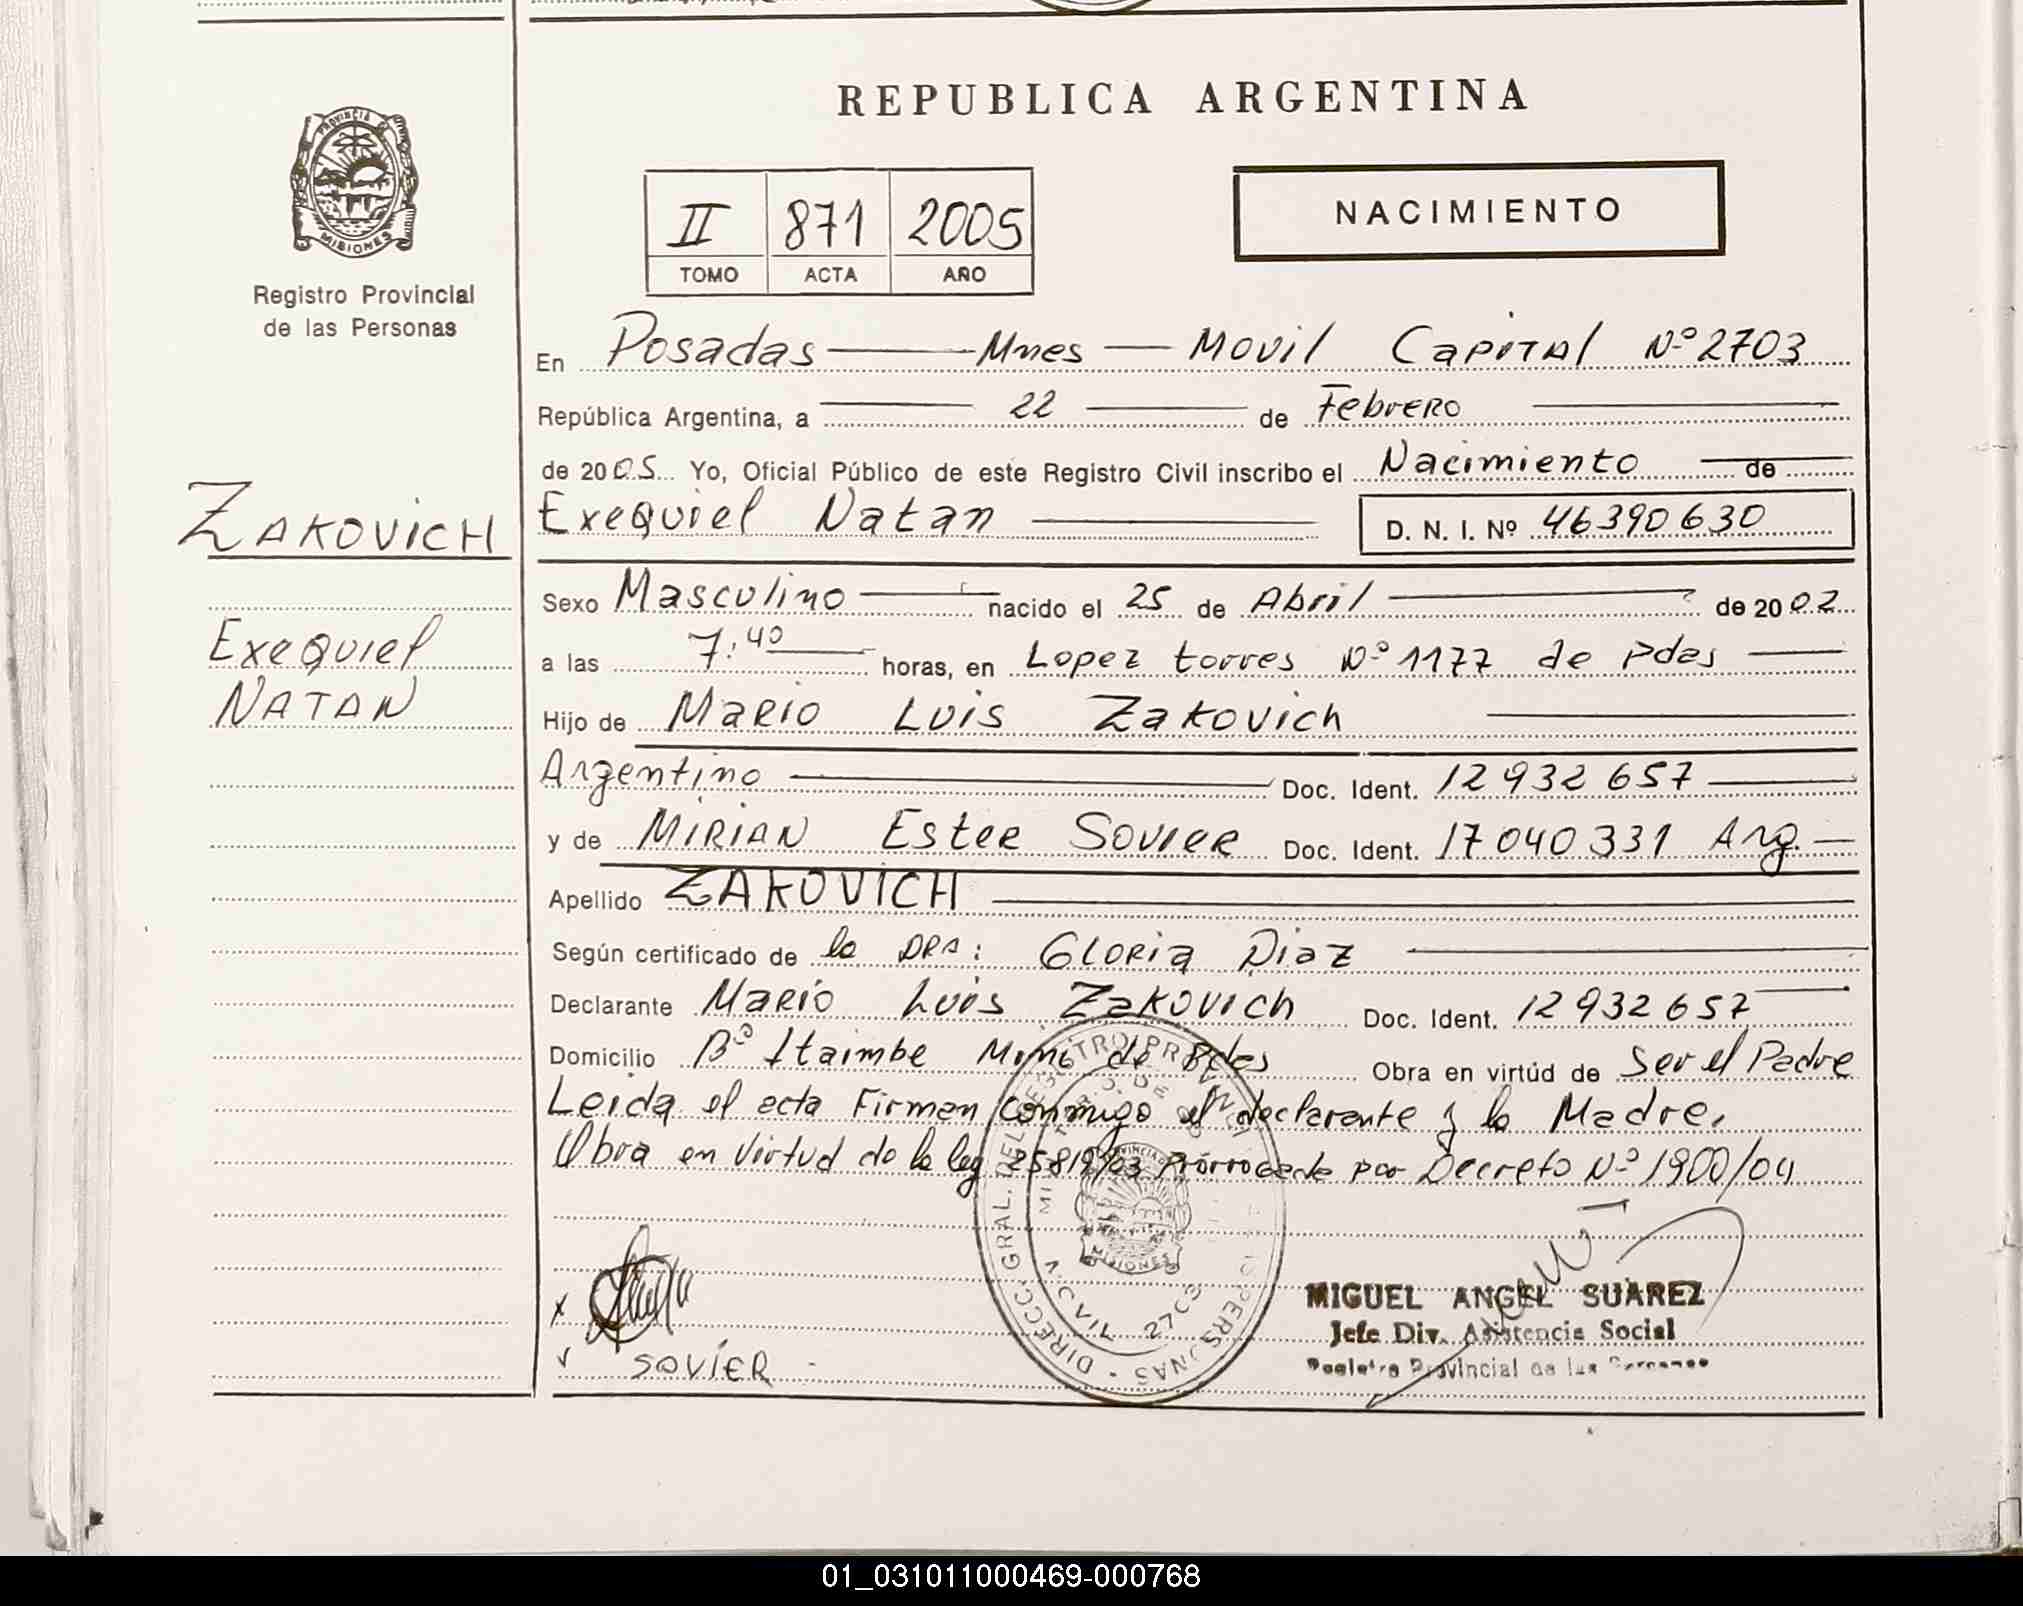 REPUBLICA ARGENTINA
PROVINCIA DE
MISIONES
Registro Provincial
de las Personas
II 871 2005
TOMO ACTA AÑO
NACIMIENTO
En Posadas Mnes Movil Capital Nº 2703
República Argentina, a 22 de Febrero
de 2005 Yo, Oficial Público de este Registro Civil inscribo el Nacimiento de
ZAKOVICH
Exequiel Natan D. N. I. Nº 46390630
Sexo Masculino nacido el 25 de Abril de 2002
Exequiel
a las 7:40 horas, en Lopez torres Nº 1177 de Pdas
NATAN
Hijo de Mario Luis Zakovich
Argentino Doc. Ident. 12 932 657
y de MIRIAN Ester Sovier Doc. Ident. 17 040 331 Arg.
Apellido ZAKOVICH
Según certificado de la DRA: Gloria Diaz
Declarante Mario Luis Zakovich Doc. Ident. 12 932 657
Domicilio Bº Itaimbe Mini de Pdas Obra en virtúd de Ser el Padre
Leida el acta Firman conmigo el declarante y la Madre.
Obra en Virtud de la ley 25819/03 Prorrogada por Decreto Nº 1900/04
DIRECC. GRAL. DEL REGISTRO PROVINCIAL PERSONAS
CIVIL 2703
MISIONES
x
SOVIER
MIGUEL ANGEL SUAREZ
Jefe Div. Asistencia Social
Registro Provincial de las Personas
01_031011000469-000768